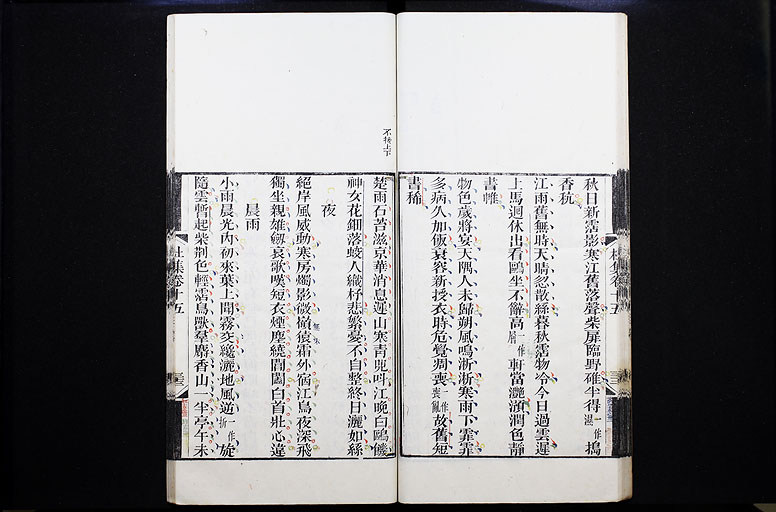 秋日新霑影寒江舊落聲柴扉臨野碓半得一作濕搗
香秔
江雨舊無時天晴忽散絲暮秋霑物冷今日過雲遲
上馬迴休出看鷗坐不辭高一作軒當灩澦潤色靜
書帷
物色歲將晏天隅人未歸朔風鳴淅淅寒雨下霏霏
多病久加飯衰容新授衣時危覺凋喪一作喪亂故舊短
書稀
楚雨石苔滋京華消息遲山寒青兕呌江晚白鷗饑
神女花鈿落蛟人織杼悲繁憂不自整終日灑如絲
夜
絕岸風威動寒房燭影微嶺猿霜外宿江鳥夜深飛
獨坐親雄劒哀歌嘆短衣煙塵繞閶闔白首壯心違
晨雨
小雨晨光內初來葉上聞霧交纔灑地風逆一作折旋
隨雲暫起柴荆色輕霑鳥獸羣麝香山一半亭午未
不接上下
杜集卷十五
杜集卷十五